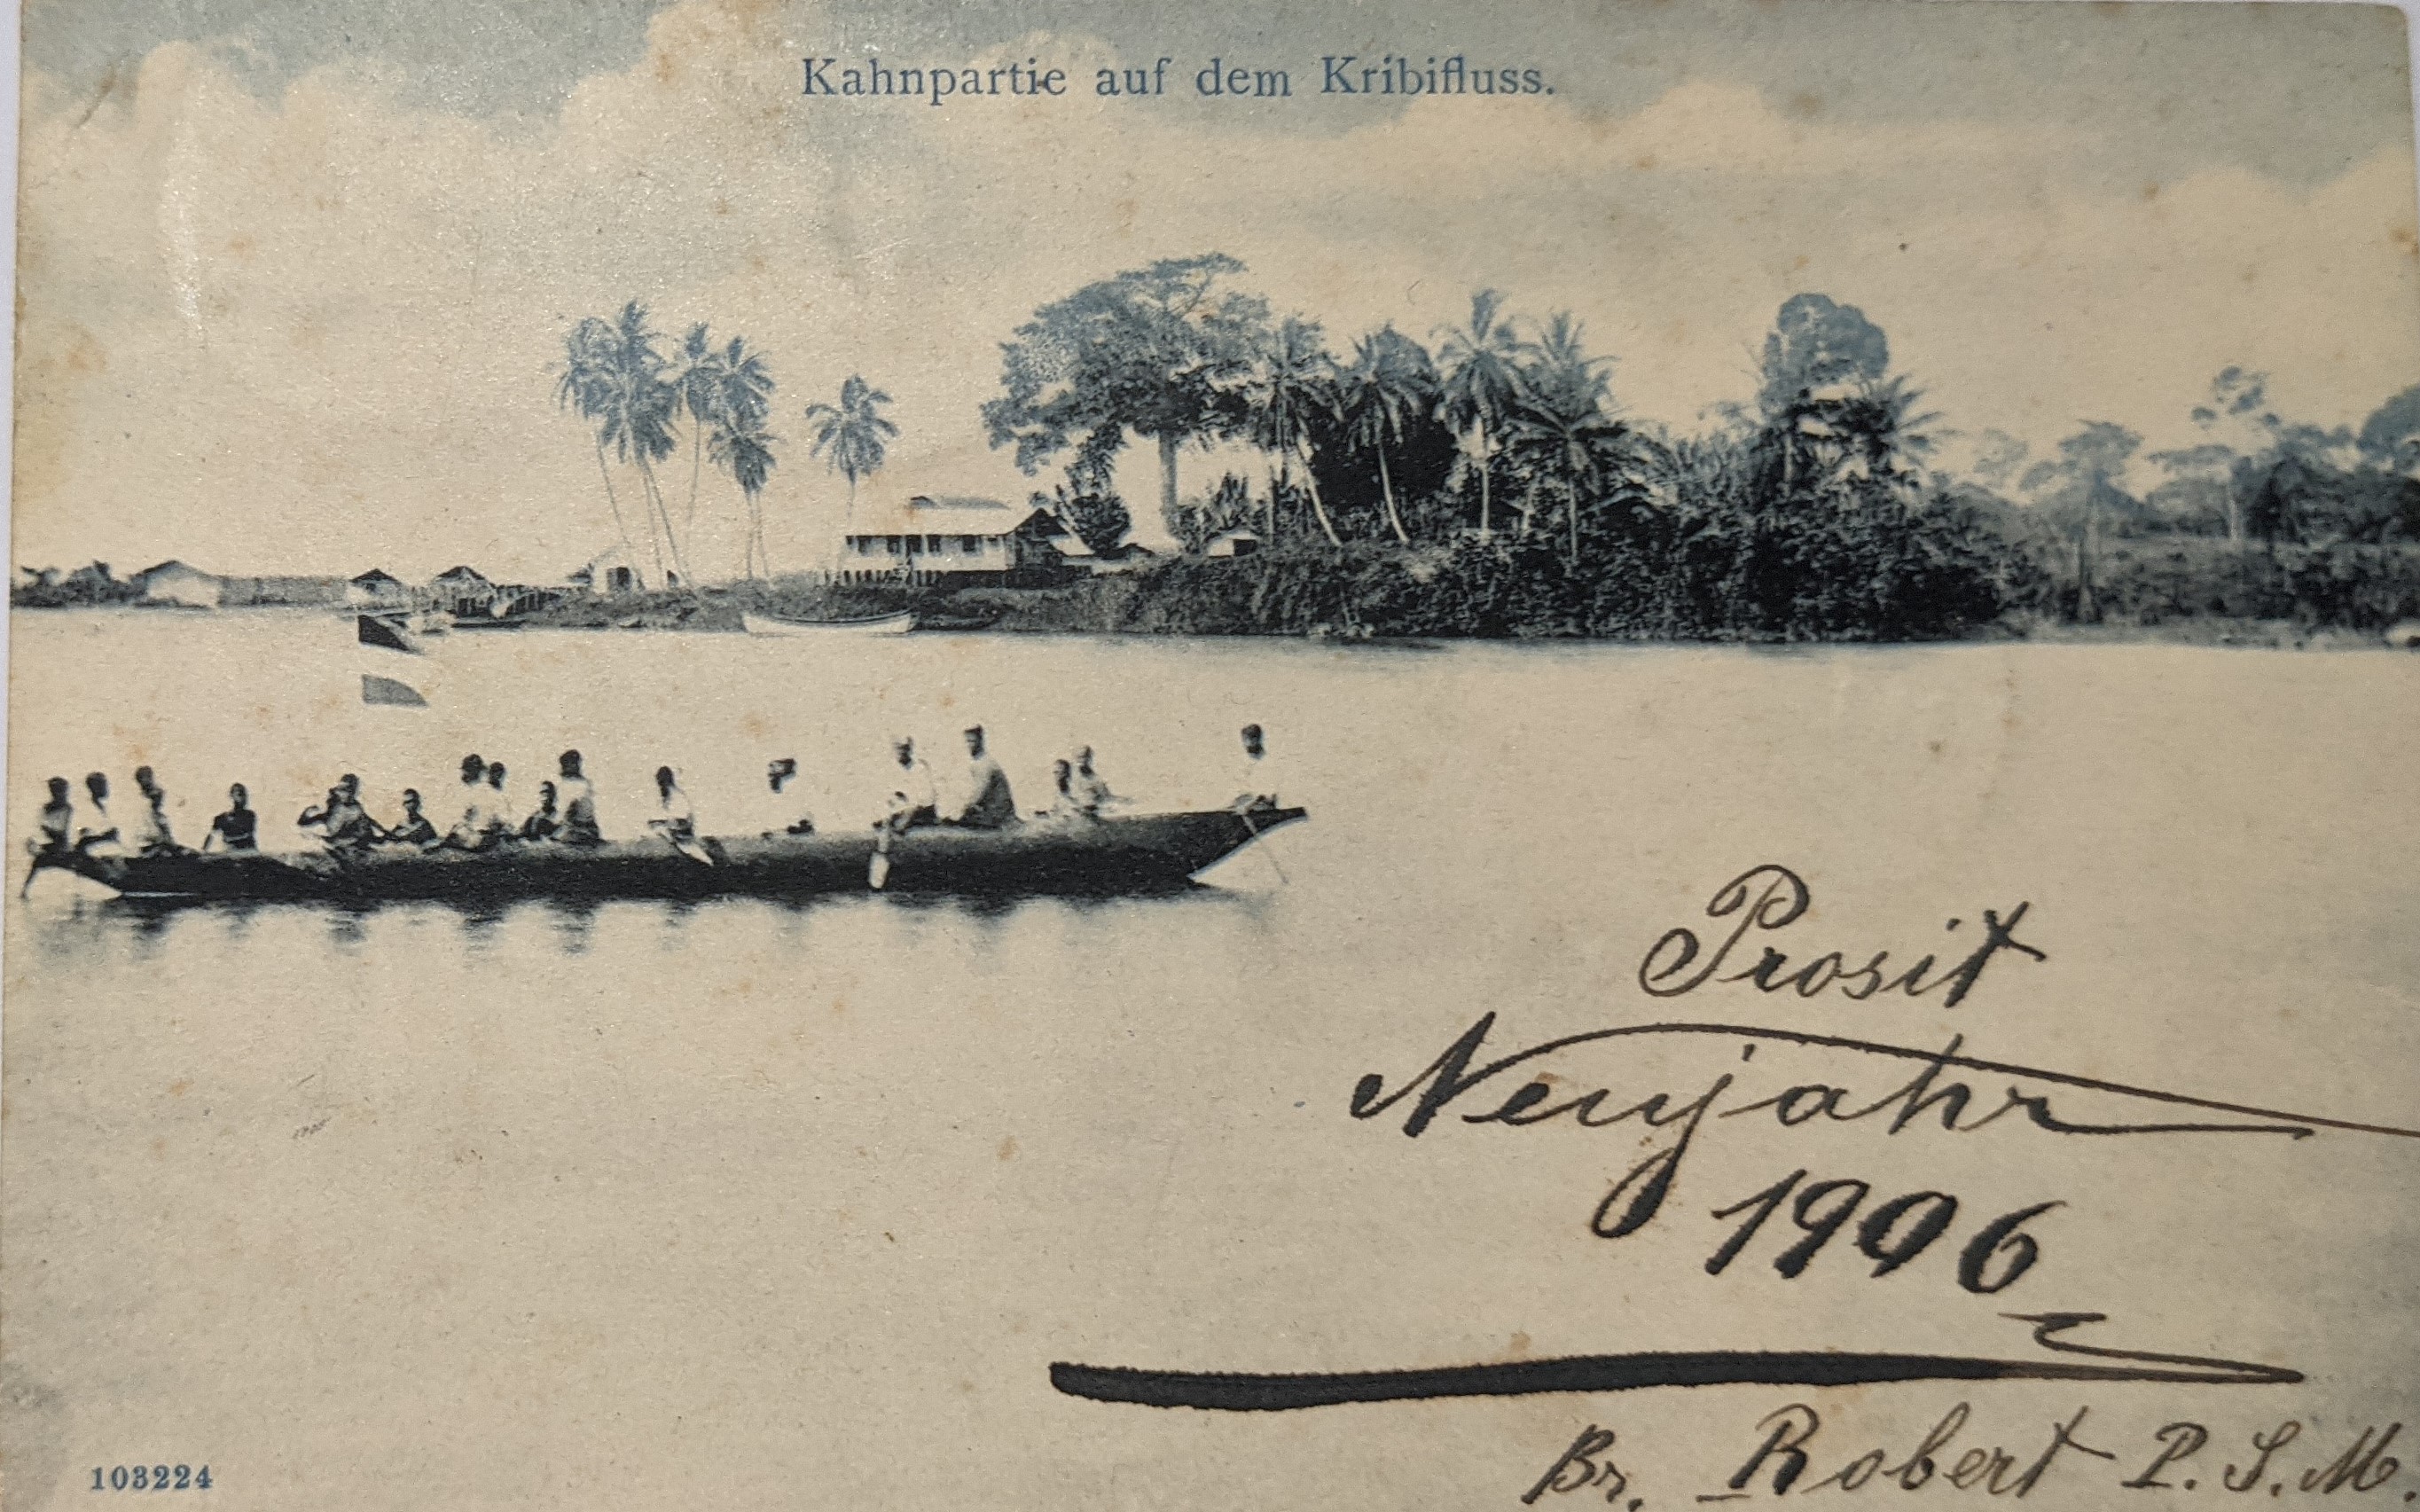 Kahnpartie auf dem Kribifluss.
Prosit
Neujahr
1906
Br. Robert P. S. M.
103224